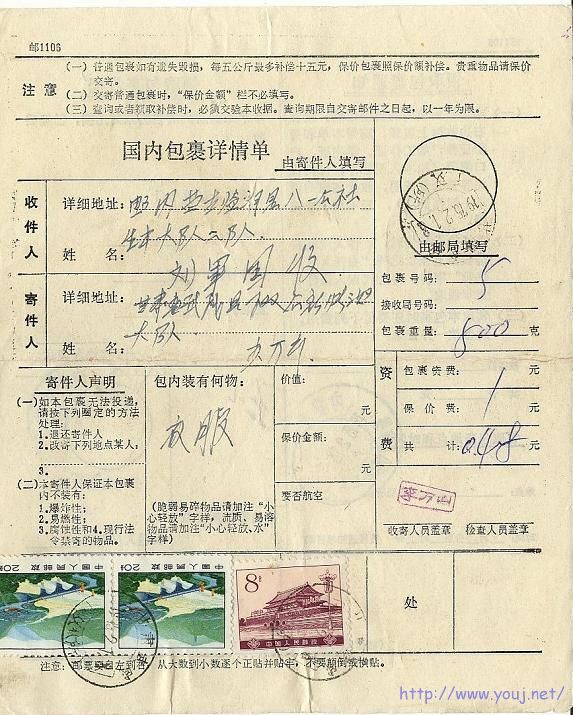 邮1106
注意
(一)普通包裹如有遗失毁损,每五公斤最多补偿十五元,保价包裹照保价额补偿。贵重物品请保价
交寄。
(二)交寄普通包裹时,“保价金额”栏不必填写。
(三)查询或者领取补偿时,必须交验本收据。查询期限自交寄邮件之日起,以一年为限。
国内包裹详情单
由寄件人填写
收件人
详细地址:
县八一公社
大队二队
姓名:
刘军国 收
寄件人
详细地址:
大队
姓名:
由邮局填写
包裹号码:5
接收局号码:
包裹重量:800克
寄件人声明
(一)如本包裹无法投递,
请按下列圈定的方法
处理:
1.退还寄件人
2.改寄下列地点某人:
3.
(二)本寄件人保证本包裹
内不装有:
1.爆炸性;
2.易燃性;
3.腐蚀性和4.现行法
令禁寄的物品。
包内装有何物:
衣服
(脆弱易碎物品请加注“小
心轻放”字样,流质、易溶
物品请加注“小心轻放、水”
字样)
价值:
元
保价金额:
元
要否航空
资费
包裹资费:
元
保价费:1元
共计:0.48元
李万山
收寄人员盖章 检查人员盖章
中国人民邮政
20分
中国人民邮政
20分
8分
中国人民邮政
处
从大数到小数逐个正贴并贴牢,不要颠倒或横贴。
http://www.youj.net/